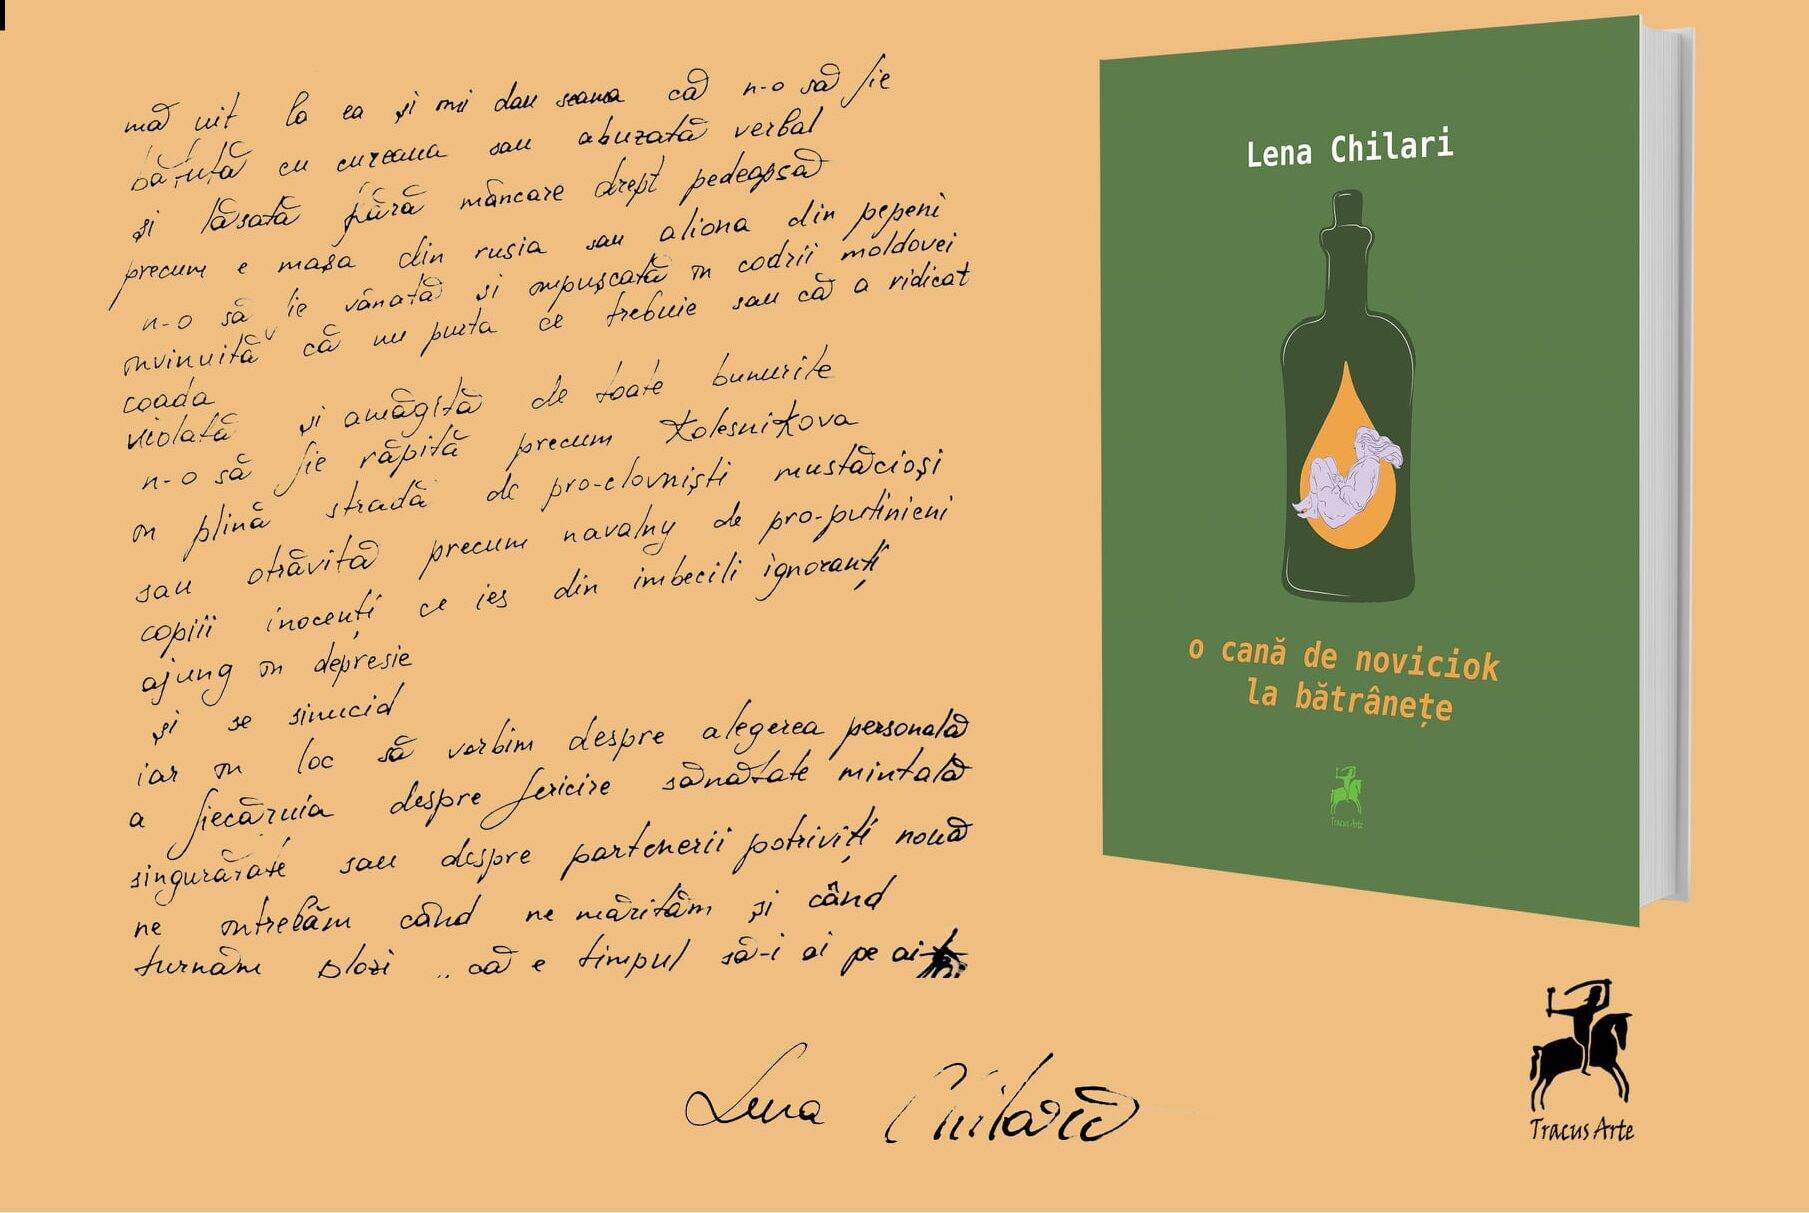 mă uit la ea și îmi dau seama că n-o să fie
bătută cu cureaua sau abuzată verbal
și lăsată fără mâncare drept pedeapsă
precum e mașa din rusia sau aliona din pepeni
n-o să fie vânată și împușcată în codrii moldovei
învinuită că nu purta ce trebuie sau că a ridicat
coada
violată și amăgită de toate bunurile
n-o să fie răpită precum Kolesnikova
în plină stradă de pro-clovniști mustăcioși
sau otrăvită precum navalny de pro-putinieni
copiii inocenți ce ies din imbecili ignoranți
ajung în depresie
și se sinucid
iar în loc să vorbim despre alegerea personală
a fiecăruia despre fericire sănătate mintală
singurătate sau despre partenerii potriviți nouă
ne întrebăm când ne mărităm și când
turnăm plozi .. că e timpul să-i ai pe ai
Lena Chilari
Lena Chilari
o cană de noviciok
la bătrânețe
Tracus Arte
Tracus Arte